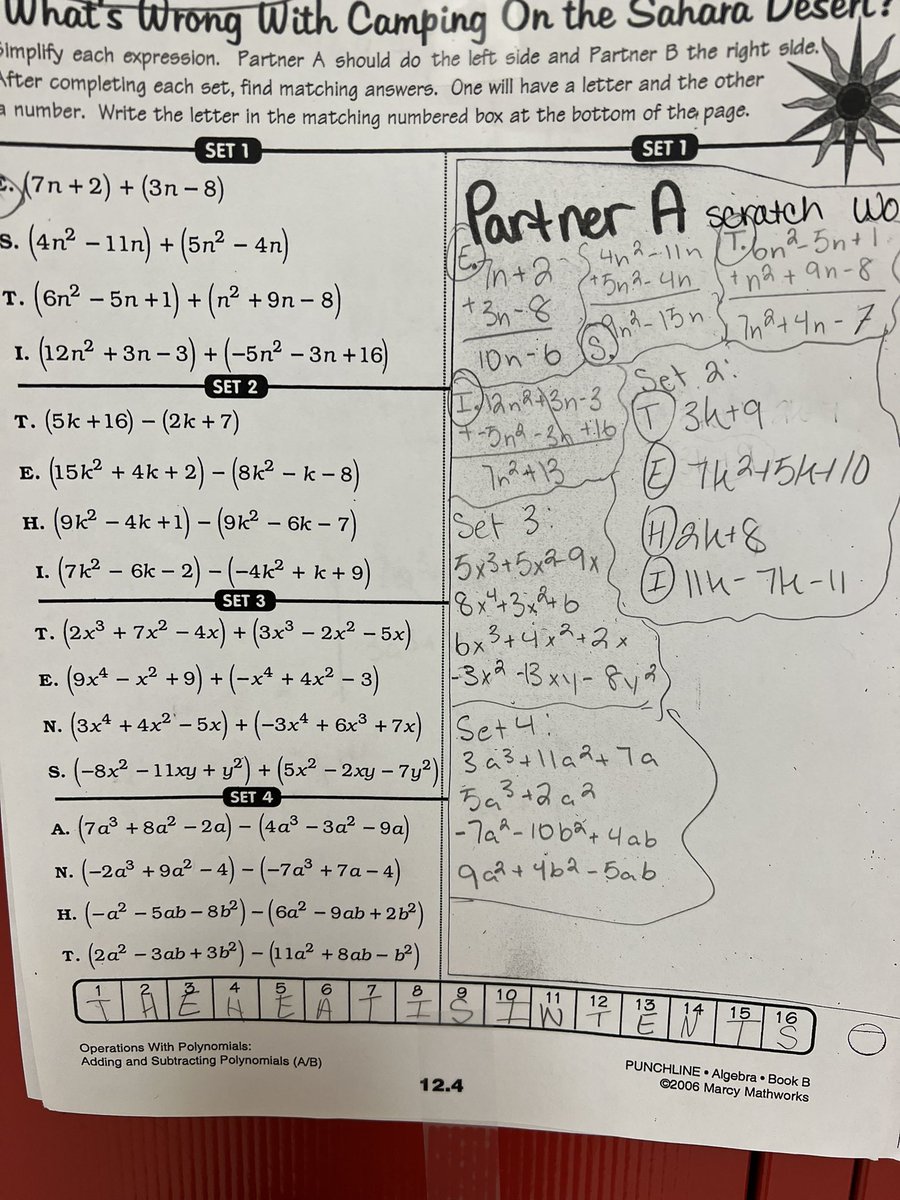 What's Wrong With Camping On the Sahara Desert?
Simplify each expression. Partner A should do the left side and Partner B the right side.
After completing each set, find matching answers. One will have a letter and the other
a number. Write the letter in the matching numbered box at the bottom of the page.
SET 1
E. (7n + 2) + (3n − 8)
S. (4n² − 11n) + (5n² − 4n)
T. (6n² − 5n + 1) + (n² + 9n − 8)
I. (12n² + 3n − 3) + (−5n² − 3n + 16)
SET 2
T. (5k + 16) − (2k + 7)
E. (15k² + 4k + 2) − (8k² − k − 8)
H. (9k² − 4k + 1) − (9k² − 6k − 7)
I. (7k² − 6k − 2) − (−4k² + k + 9)
SET 3
T. (2x³ + 7x² − 4x) + (3x³ − 2x² − 5x)
E. (9x⁴ − x² + 9) + (−x⁴ + 4x² − 3)
N. (3x⁴ + 4x² − 5x) + (−3x⁴ + 6x³ + 7x)
S. (−8x² − 11xy + y²) + (5x² − 2xy − 7y²)
SET 4
A. (7a³ + 8a² − 2a) − (4a³ − 3a² − 9a)
N. (−2a³ + 9a² − 4) − (−7a³ + 7a − 4)
H. (−a² − 5ab − 8b²) − (6a² − 9ab + 2b²)
T. (2a² − 3ab + 3b²) − (11a² + 8ab − b²)
SET 1
Partner A scratch wo
E. 7n+2
+3n-8
10n-6
4n²-11n
+5n²-4n
9n²-15n
S.
T. 6n²-5n+1
+n²+9n-8
7n²+4n-7
I. 12n²+3n-3
+-5n²-3n+16
7n²+13
Set 2:
T 3k+9
E 7k²+5k+10
H 2k+8
I 11k-7k-11
Set 3:
5x³+5x²-9x
8x⁴+3x²+6
6x³+4x²+2x
-3x²-13xy-8y²
Set 4:
3a³+11a²+7a
5a³+2a²
-7a²-10b²+4ab
9a²+4b²-5ab
1 2 3 4 5 6 7 8 9 10 11 12 13 14 15 16
T H E H E A T I S I N T E N T S
Operations With Polynomials:
Adding and Subtracting Polynomials (A/B)
12.4
PUNCHLINE • Algebra • Book B
©2006 Marcy Mathworks